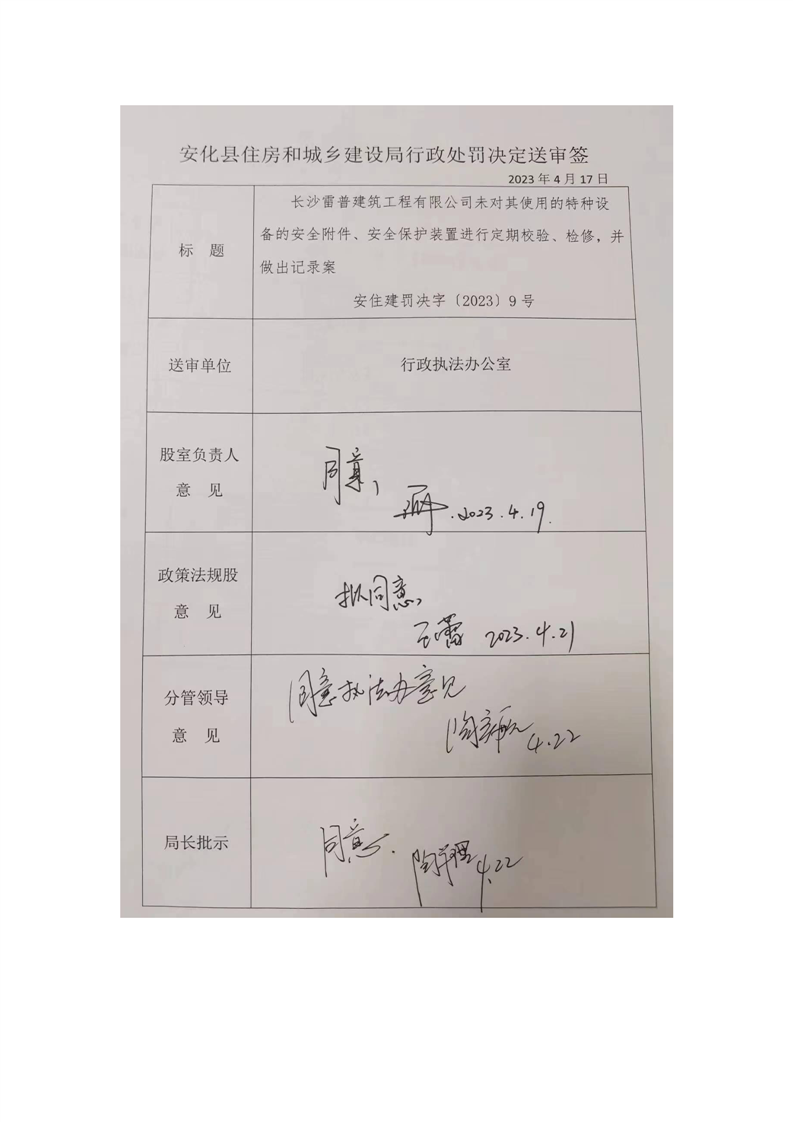 安化县住房和城乡建设局行政处罚决定送审签
2023 年 4 月 17 日
标 题
长沙雷普建筑工程有限公司未对其使用的特种设
备的安全附件、安全保护装置进行定期校验、检修，并
做出记录案
安住建罚决字〔2023〕9 号
送审单位
行政执法办公室
股室负责人
意 见
同意，
2023.4.19.
政策法规股
意 见
拟同意，
2023.4.21
分管领导
意 见
同意执法办意见
4.22
局长批示
同意.
4.22